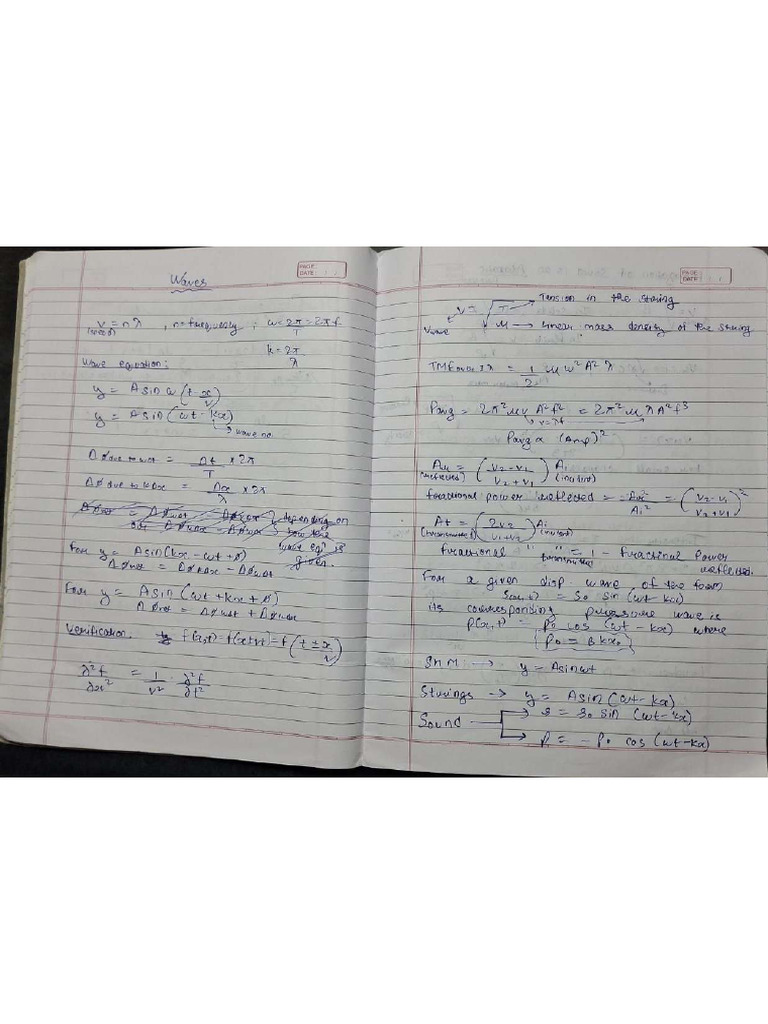 Waves
PAGE:
DATE:
v = nλ , n = frequency ; ω = 2π/T = 2πf
(speed)
k = 2π/λ
Wave equation:
y = A sin ω (t - x/v)
y = A sin (ωt - kx)
↳ wave no.
Δø due to ωt = Δt/T × 2π
Δø due to kΔx = Δx/λ × 2π
Δønet = Δøωt - Δøkx } depending on
Δøkx - Δøωt } how the
wave eqn is
given.
For y = A sin (kx - ωt + ø)
Δønet = Δøkx - Δøωt
For y = A sin (ωt + kx + ø)
Δønet = Δøωt + Δøkx
Verification. f(x,t) = f(x±vt) = f(t ± x/v)
∂²f/∂x² = 1/v² · ∂²f/∂t²
PAGE:
DATE:
Vwave = √T/μ → Tension in the string
μ → linear mass density of the string
TME over 1λ = 1/2 μ ω² A² λ
Pavg = 2π² μ v A² f² = 2π² μ λ A² f³
v = λf
Pavg ∝ (Amp)²
Ar = (v2 - v1 / v2 + v1) Ai
(reflected) (incident)
fractional power reflected = Ar²/Ai² = (v2 - v1 / v2 + v1)²
At = (2v2 / v1 + v2) Ai
(transmitted) (incident)
fractional " " transmitted = 1 - fractional power
reflected.
For a given disp wave of the form
s(x,t) = s0 sin (ωt - kx)
its corresponding pressure wave is
p(x,t) = p0 cos (ωt - kx) where
p0 = B k s0
SHM: → y = A sin ωt
Strings → y = A sin (ωt - kx)
Sound → s = s0 sin (ωt - kx)
→ p = - p0 cos (ωt - kx)